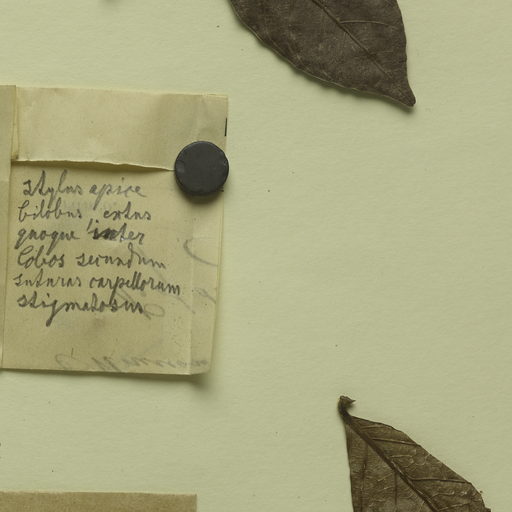 stylus apice
bilobus extus
quoque inter
lobos secundum
suturas carpellorum
stigmatosus